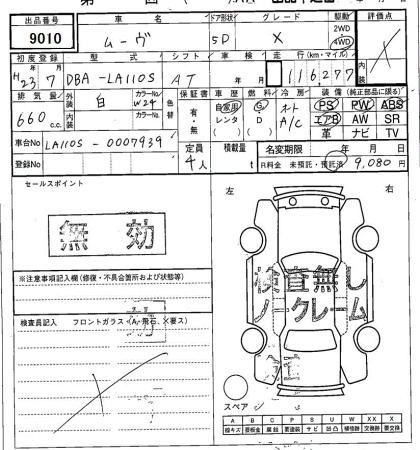 出品番号 車名 ドア形状 グレード 駆動 評価点
9010 ムーヴ 5D X 2WD 4WD
初度登録 型式 シフト 車検 走行(km・マイル)
H23年7月 DBA-LA110S AT 年 月 116,277
排気量 外装 白 カラーNo. W24 色替 保証書 車歴 燃料 冷房 装備(純正部品に限る)
660 c.c. 内装 カラーNo. 有・無 自家用 レンタ G D オート A/C PS PW ABS
エアB AW SR
革 ナビ TV
車台No LA110S-0007939 定員 4人 積載量 t 名変期限 年 月 日
登録No R料金 未預託・預託済 9,080円
セールスポイント 左 右
無効
※注意事項記入欄(修復・不具合箇所および状態等)
直無し
ノークレーム
検査員記入 フロントガラス(A・飛石、X要ス)
スペア
A B C P S U W X XX
線キズ 要板金 腐蝕 要塗装 サビ 凹凸 補修跡 交換跡 要交換